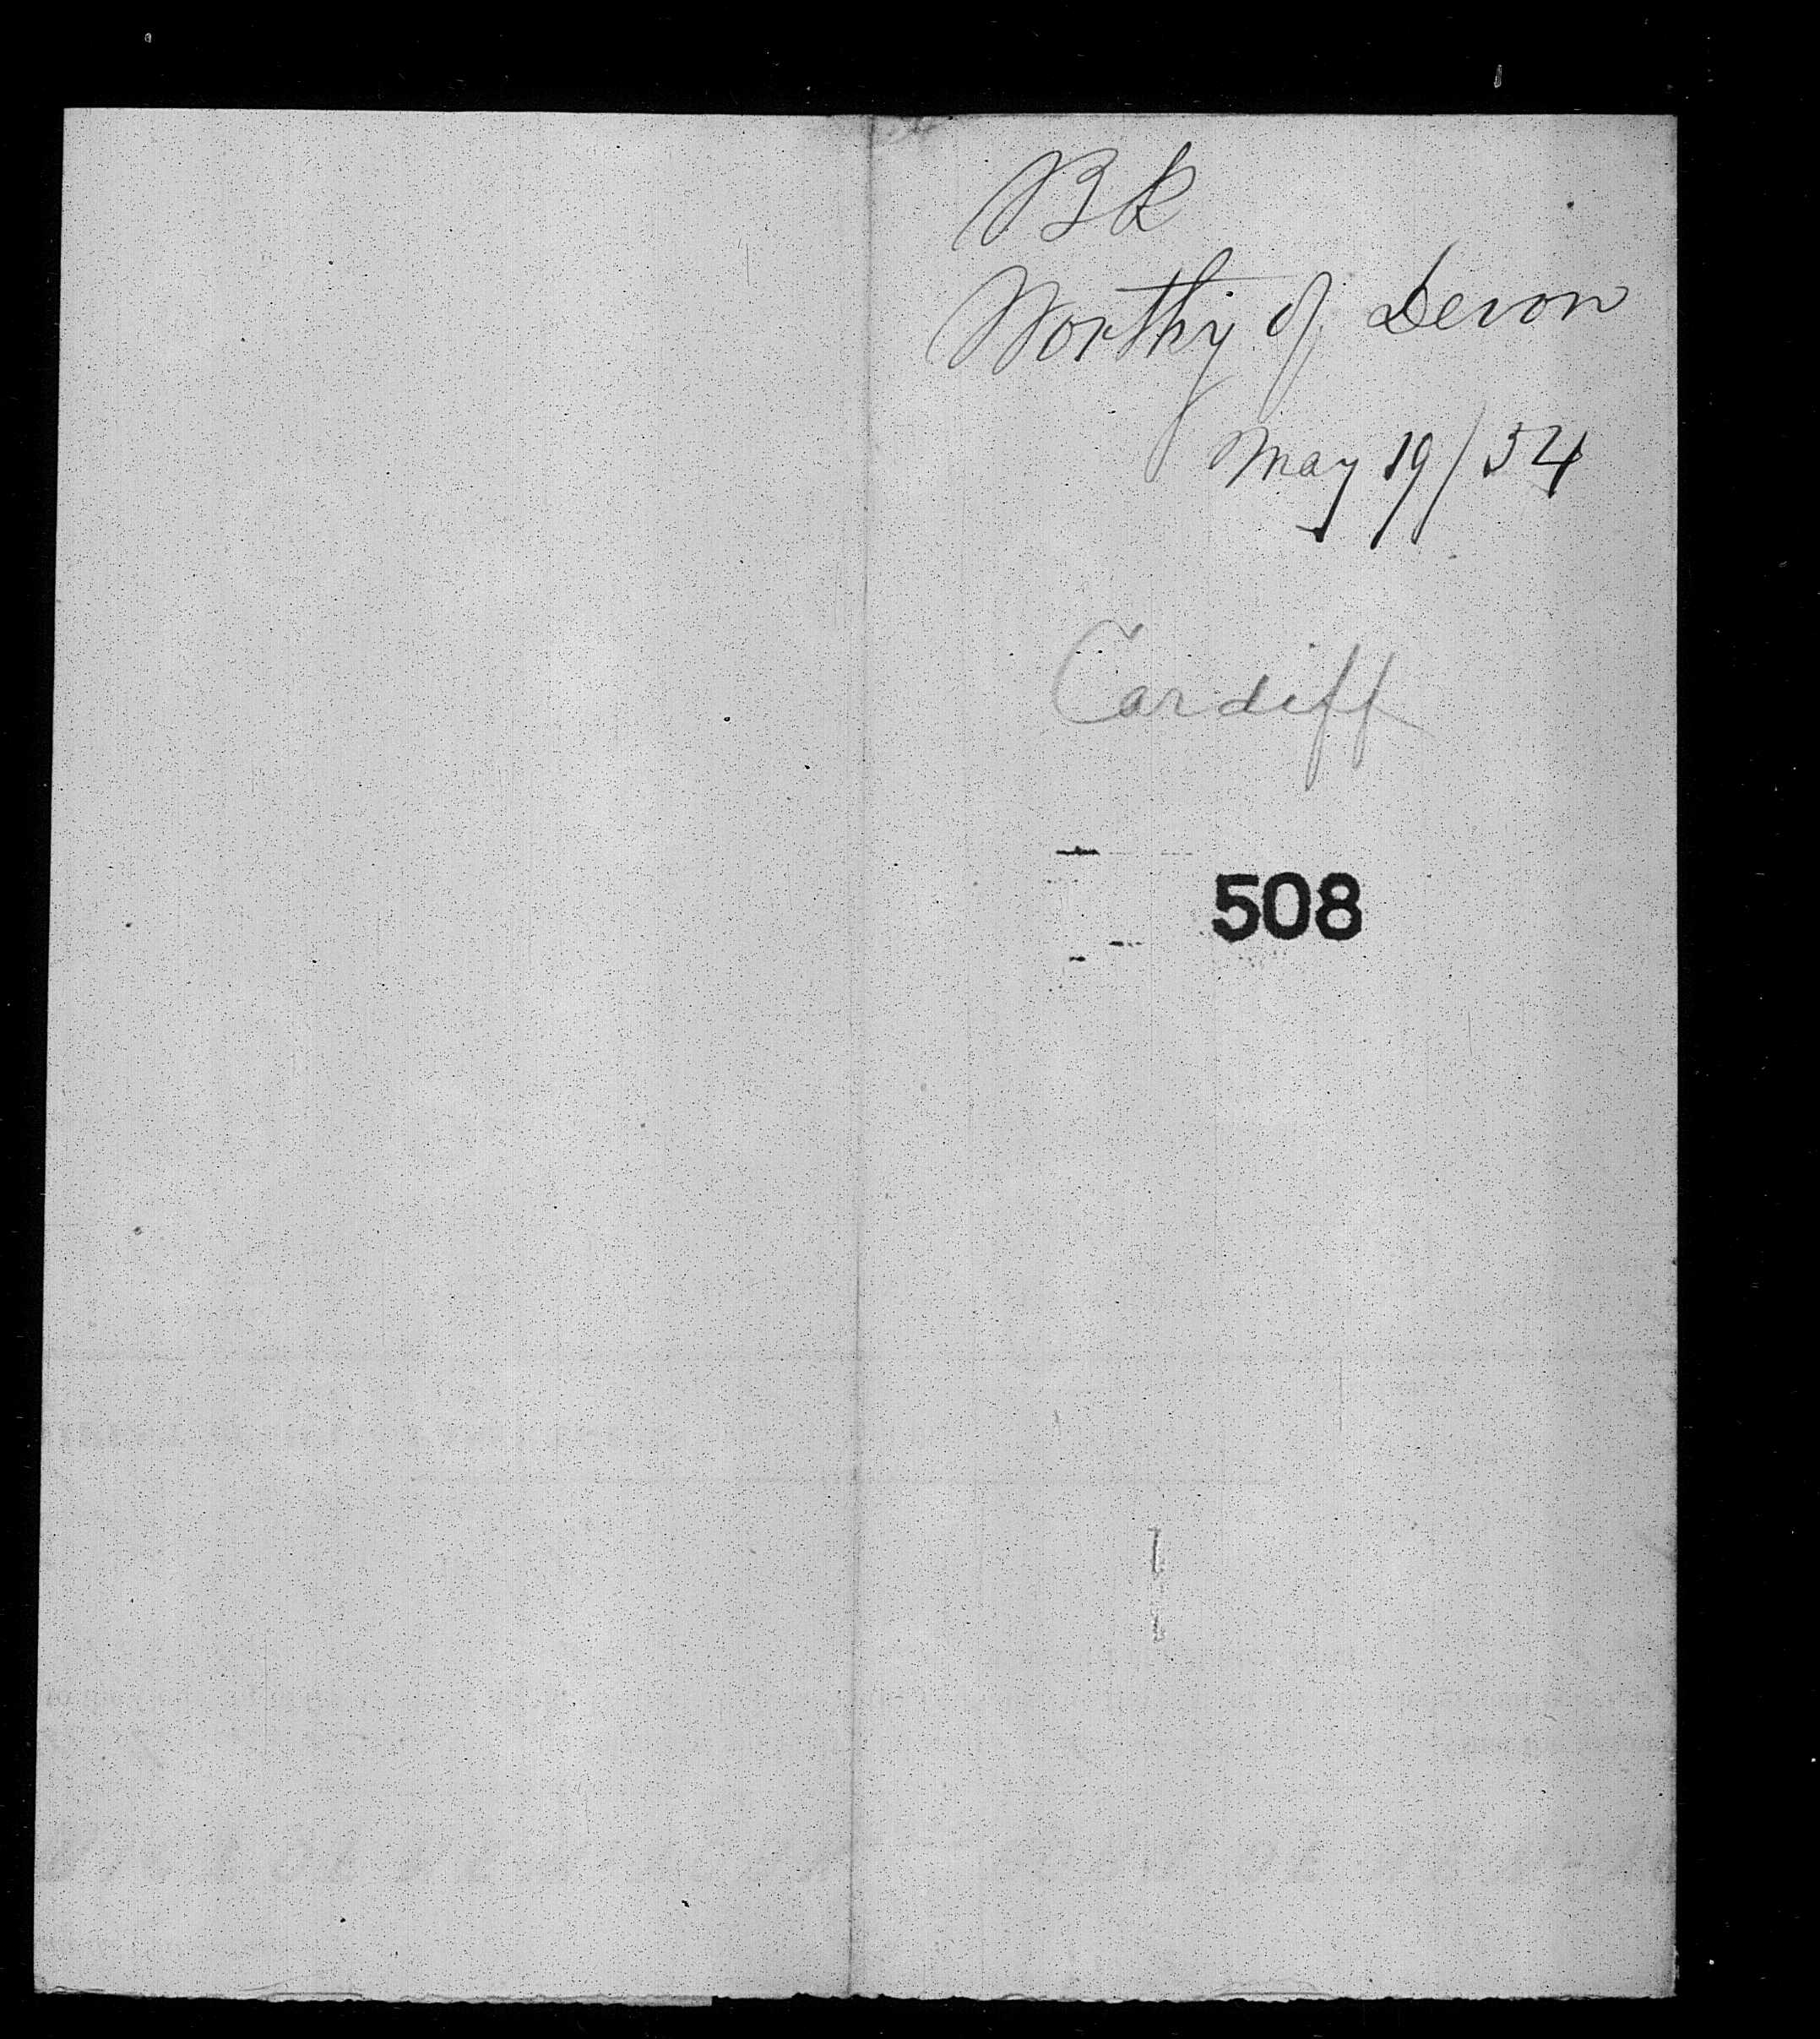 Bk
Worthy of Devon
May 19/54
Cardiff
508